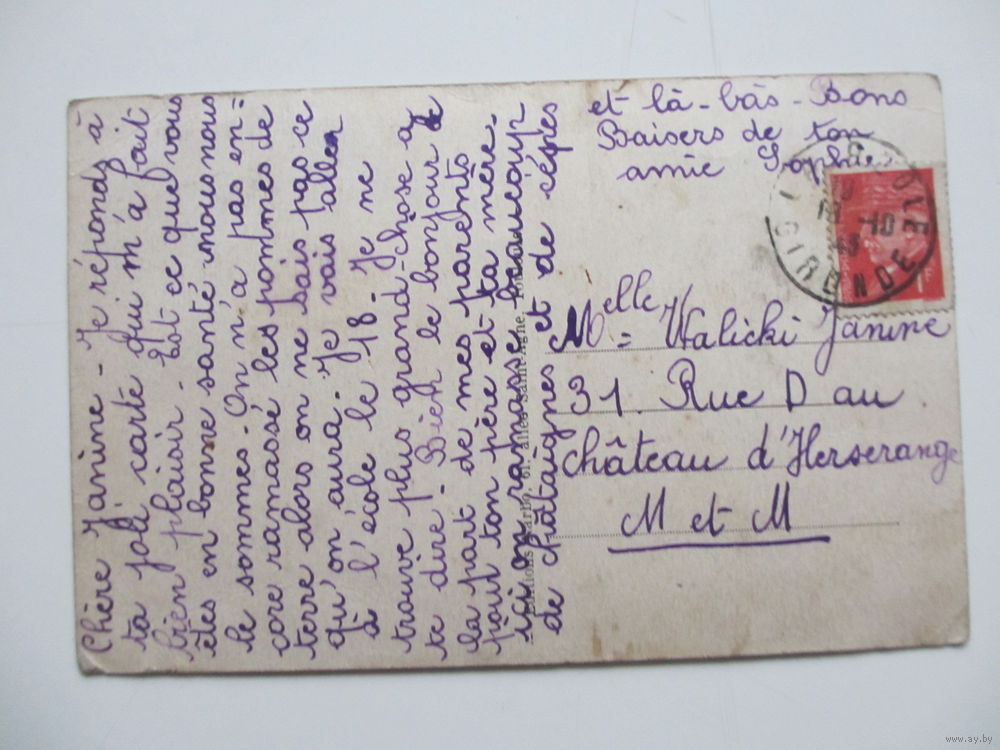 Chère Janine - Je réponds à
ta joli carte qui m'à fait
bien plaisir - Est ce que vous
êtes en bonne santé nous nous
le sommes - On n'a pas en=
core ramassé les pommes de
terre alors on ne sais pas ce
qu'on aura - Je vais aller
à l'école le 18 - Je ne
trouve plus grand-chose a
te dire - Bien le bonjour de
la part de mes parents
pour ton père et ta mère.
ici on ramasse beaucoup
de châtaignes et de sépes
et là-bàs - Bons
Baisers de ton
amie Sophie
Melle = Walicki Janine
31. Rue D au
château d'Herserange
M et M
61, allée Sainte-Agne
18 -10
GIRONDE
www.ay.by